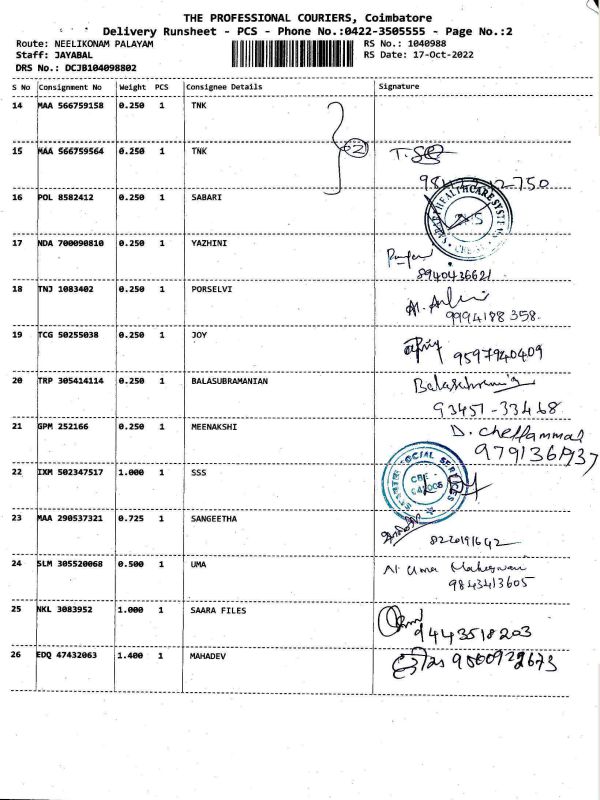 THE PROFESSIONAL COURIERS, Coimbatore
Delivery Runsheet - PCS - Phone No.:0422-3505555 - Page No.:2
Route: NEELIKONAM PALAYAM
Staff: JAYABAL
DRS No.: DCJB104098802
RS No.: 1040988
RS Date: 17-Oct-2022
S No Consignment No Weight PCS Consignee Details Signature
14 MAA 566759158 0.250 1 TNK
02
15 MAA 566759564 0.250 1 TNK
16 POL 8582412 0.250 1 SABARI
17 NDA 700090810 0.250 1 YAZHINI
8940436621
18 TNJ 1083402 0.250 1 PORSELVI
9994188 358.
19 TCG 50255038 0.250 1 JOY
9597940409
20 TRP 305414114 0.250 1 BALASUBRAMANIAN
93451-33468
21 GPM 252166 0.250 1 MEENAKSHI
D. Chellammal
22 IXM 502347517 1.000 1 SSS
SOCIAL SERVICES
23 MAA 290537321 0.725 1 SANGEETHA
8220191642
24 SLM 305520068 0.500 1 UMA
N. Uma Maheswari
9843413605
25 NKL 3083952 1.000 1 SAARA FILES
9443518203
26 EDQ 47432063 1.400 1 MAHADEV